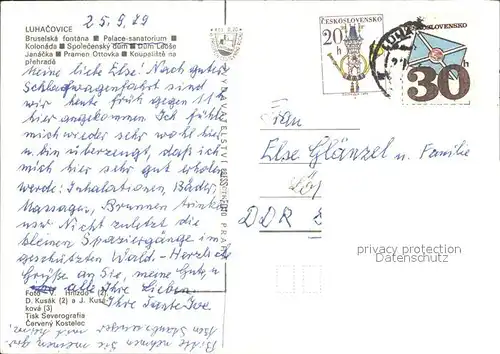 25.9.89
LUHAČOVICE
Bruselská fontána ■ Palace-sanatorium ■
Kolonáda ■ Společenský dům ■ Dům Leoše
Janáčka ■ Pramen Ottovka ■ Koupaliště na
přehradě
Meine liebe Else! Nach guter
Schlafwagenfahrt sind
wir heute früh gegen 11h
hier angekommen. Ich fühle
mich wieder sehr wohl hier
u. bin überzeugt, daß ich
mich hier sehr gut erholen
werde: Inhalationen, Bäder,
Massagen, Brunnen trinken
usw Nicht zuletzt die
kleinen Spaziergänge im
geschützten Wald. Herzliche
Grüße an Sie, meine Gute, u
alle Ihre Lieben
Ihre Tante
Foto V. Hnízdo (2),
D. Kusák (2) a J. Kus
ková (3)
Tisk Severografia
Červený Kostelec
Bitte nehmen Sie
ČESKOSLOVENSKO
20 h
ČESKOSLOVENSKO
30 h
Frau
Else Glänzel u. Familie
DDR
privacy protection
Datenschutz